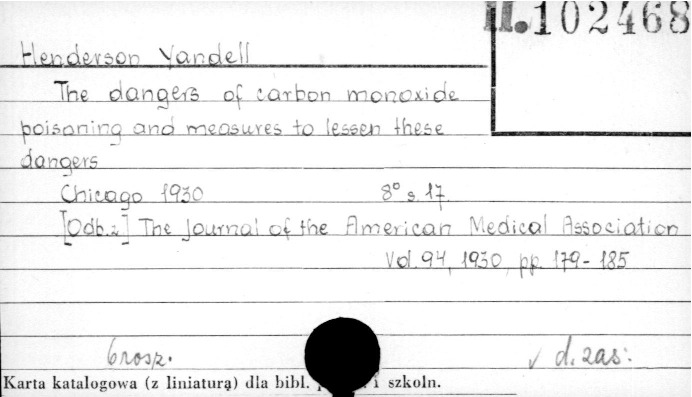 II.102468
Henderson Yandell
The dangers of carbon monoxide
poisoning and measures to lessen these
dangers
Chicago 1930 8° s. 17.
[Odb. z] The Journal of the American Medical Association
Vol. 94, 1930, pp. 179-185
brosz.
√ d. zas.
Karta katalogowa (z liniaturą) dla bibl. i szkoln.